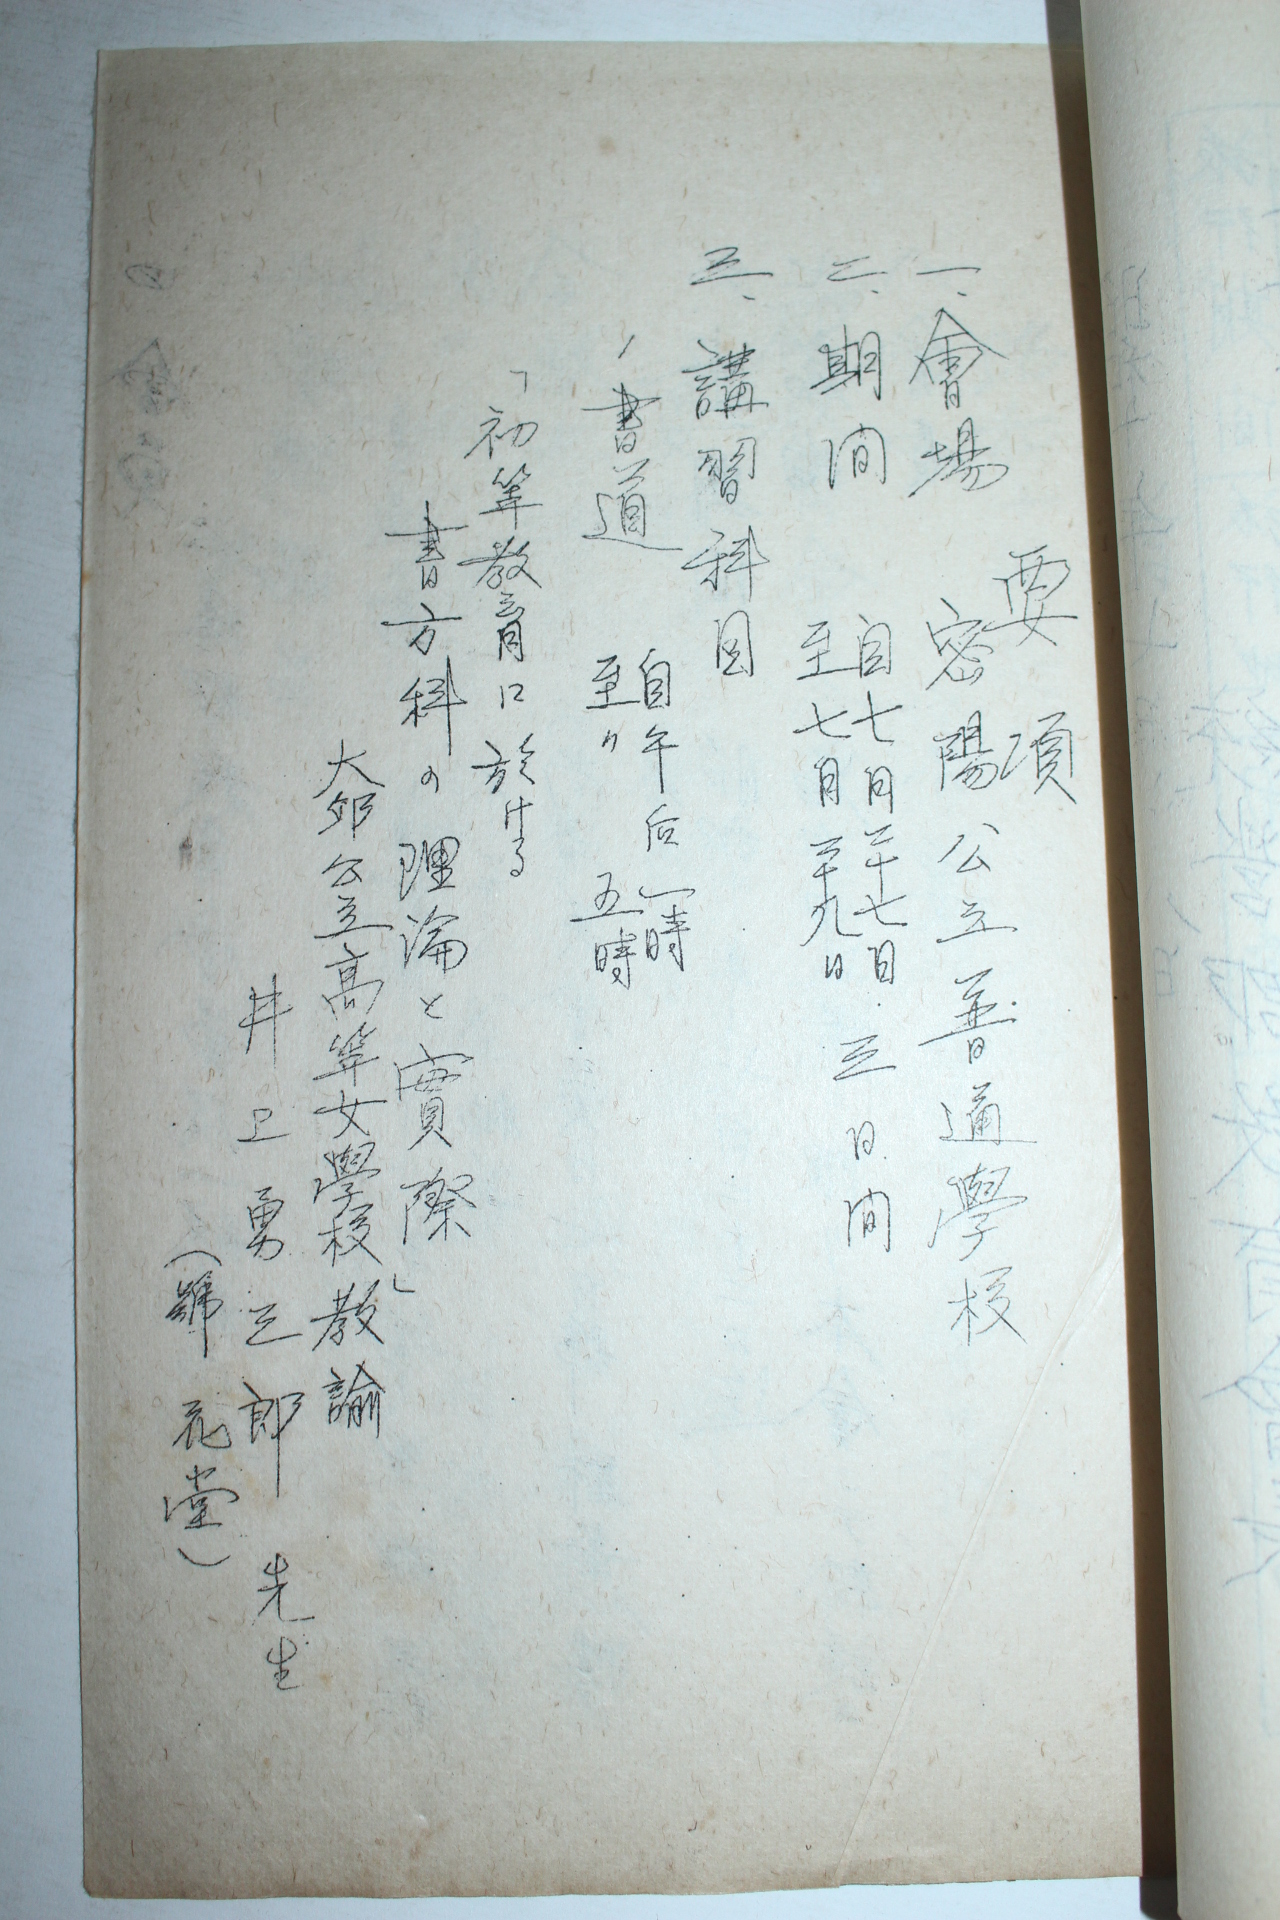 要項
一、會場 密陽公立普通學校
二、期間 自七月二十七日 至七月二十九日 三日間
三、講習科目
ノ書道 自午后一時 至〃五時
「初等教育に於ける
書方科の理論と實際」
大邱公立高等女學校教諭
井上勇三郎先生
(號 花堂)